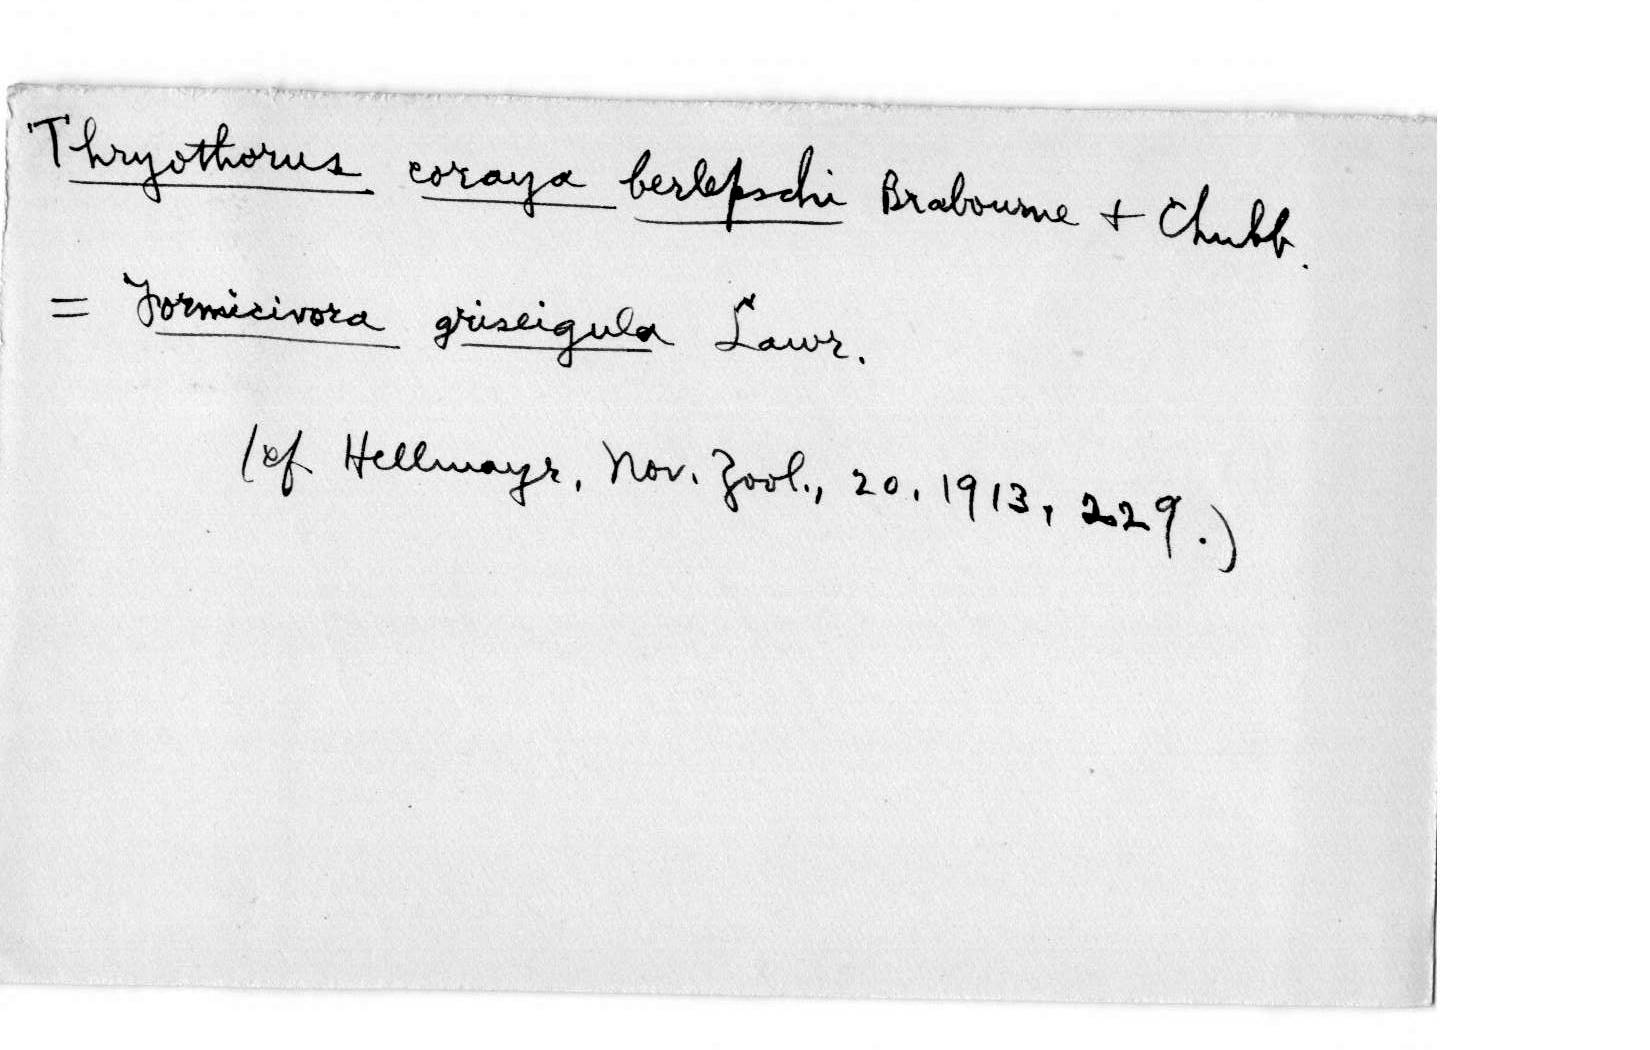 Thryothorus coraya berlepschi Brabourne + Chubb.
= Formicivora griseigula Lawr.
(cf Hellmayr, Nov. Zool., 20, 1913, 229.)